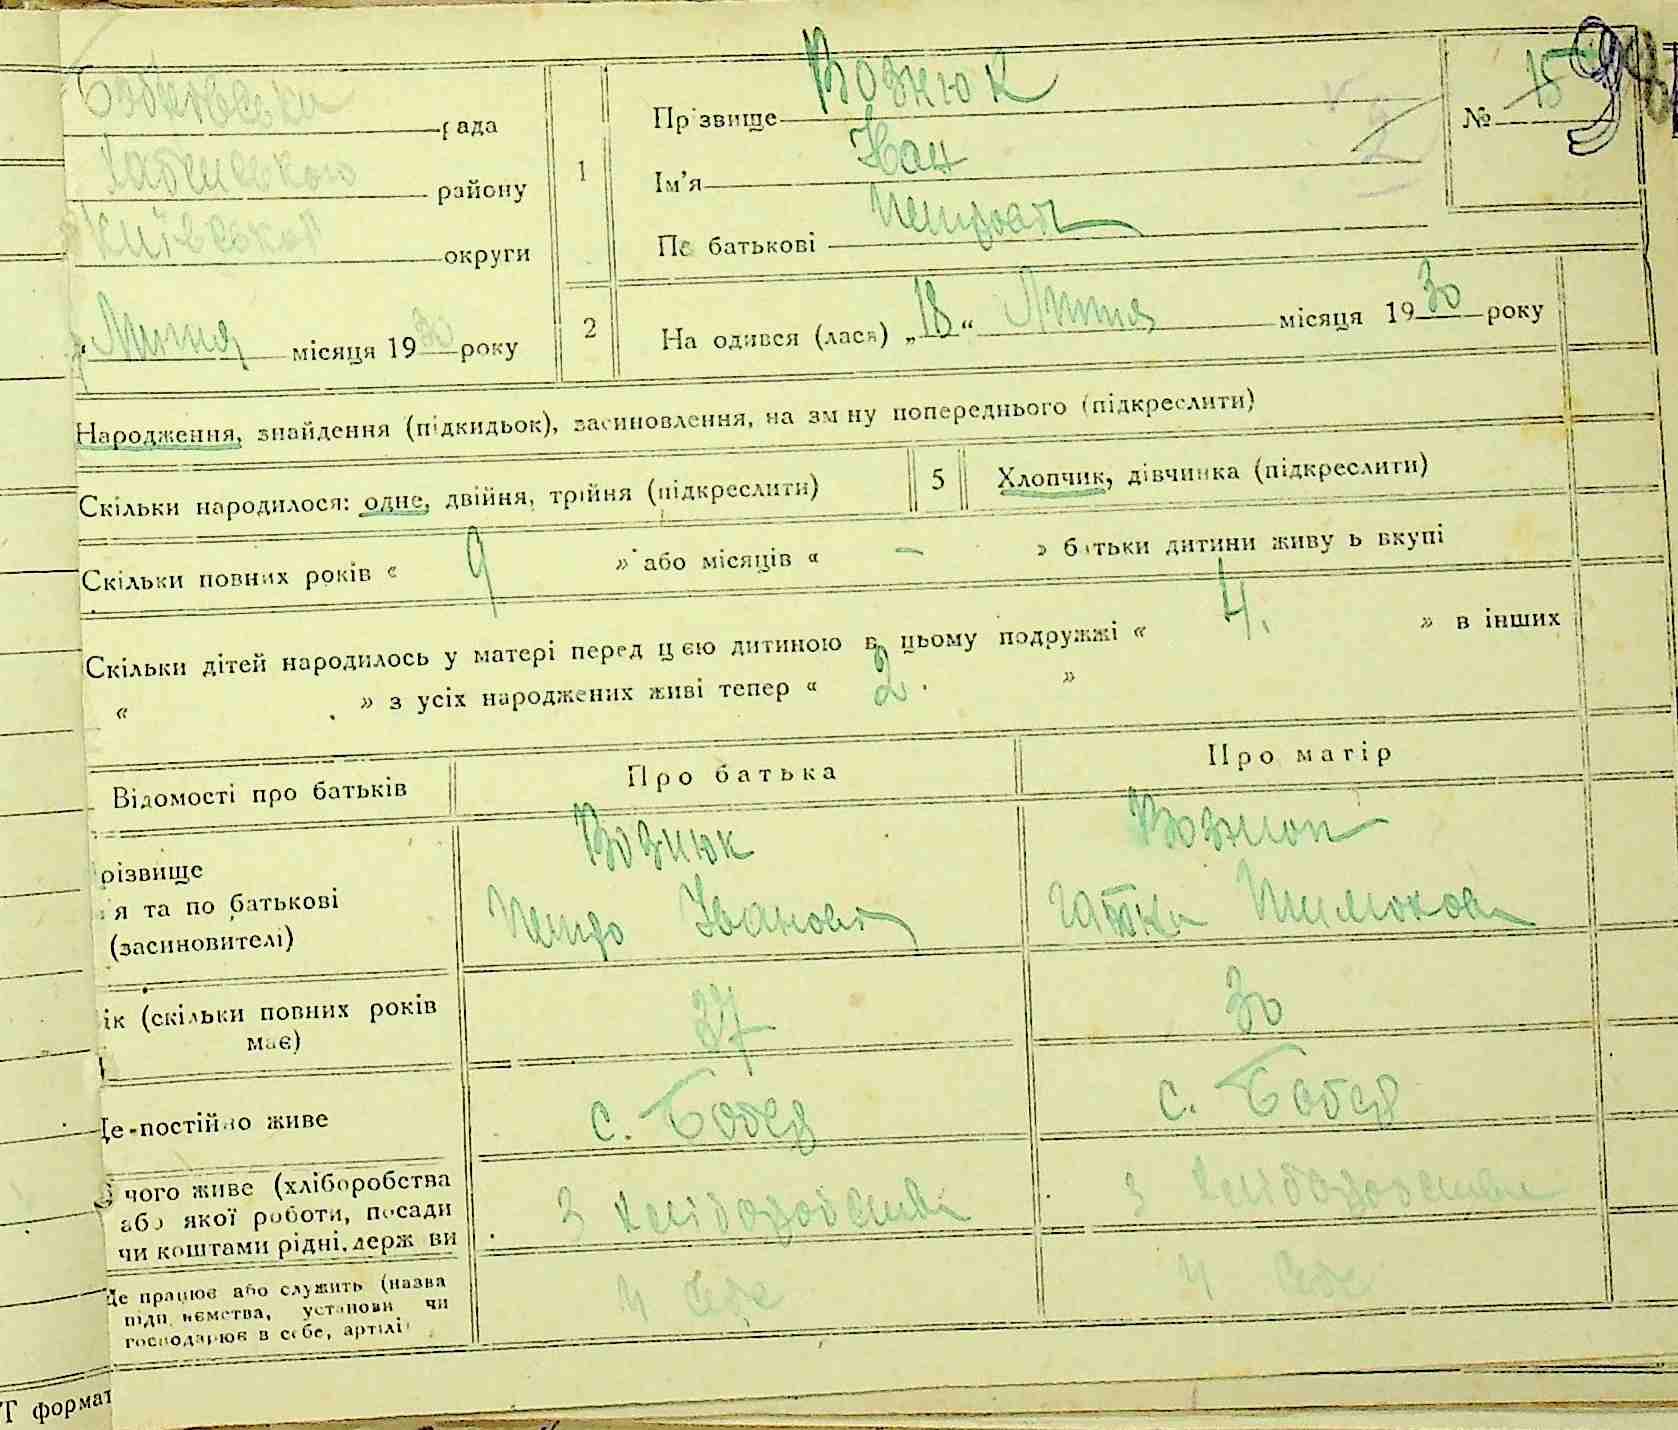 рада
районУ
Київської округи
Липня місяця 1930 року
1
Прізвище Вознюк
Ім'я Іван
По батькові
№ 15
2
На одився (лася) „18“ Липня місяця 1930 року
Народження, знайдення (підкидьок), засиновлення, на зм ну попереднього (підкреслити)
Скільки народилося: одне, двійня, трійня (підкреслити)
5 Хлопчик, дівчинка (підкреслити)
Скільки повних років « 9 » або місяців « – » батьки дитини живу ь вкупі
Скільки дітей народилось у матері перед цією дитиною в цьому подружжі « 4. » в інших
« » з усіх народжених живі тепер « 2. »
Відомості про батьків
Про батька
Про матір
різвище
я та по батькові
(засиновителі)
Вознюк
Петро Іванович
Вознюк
ік (скільки повних років
має)
37
30
Де постійно живе
с.
с.
З чого живе (хліборобства
або якої роботи, посади
чи коштами рідні, держ ви
З хліборобства
З хліборобства
Де працює або служить (назва
підп иємства, установи чи
господарює в себе, артілі
У себе
У себе
Т формат